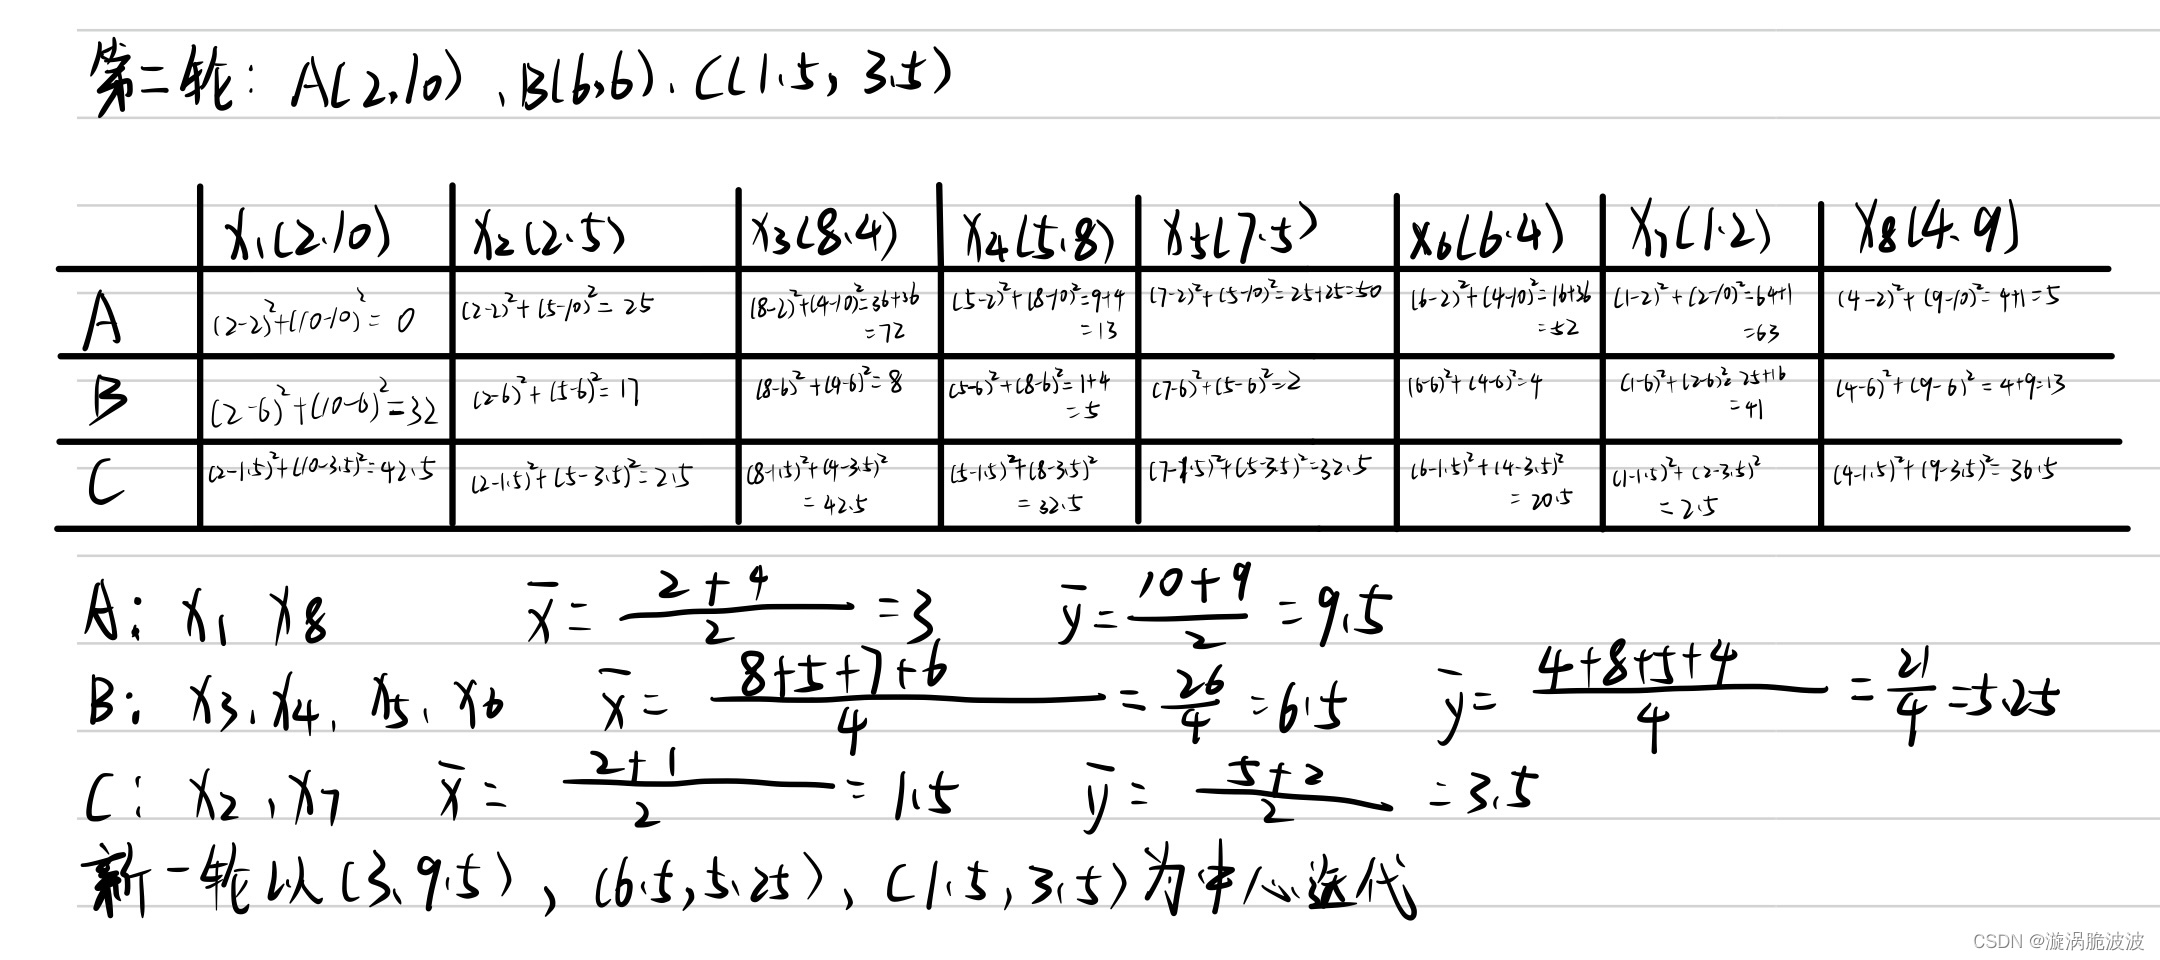 第二轮: A(2,10)、B(6,6)、C(1.5, 3.5)
X₁(2.10) X₂(2.5) X₃(8.4) X₄(5.8) X₅(7.5) X₆(6.4) X₇(1.2) X₈(4.9)
A (2-2)²+(10-10)²= 0 (2-2)²+(5-10)²= 25 (8-2)²+(4-10)²=36+36 =72 (5-2)²+(8-10)²=9+4 =13 (7-2)²+(5-10)²=25+25=50 (6-2)²+(4-10)²=16+36 =52 (1-2)²+(2-10)²=64+1 =63 (4-2)²+(9-10)²=4+1=5
B (2-6)²+(10-6)²=32 (2-6)²+(5-6)²=17 (8-6)²+(4-6)²=8 (5-6)²+(8-6)²=1+4 =5 (7-6)²+(5-6)²=2 (6-6)²+(4-6)²=4 (1-6)²+(2-6)²=25+16 =41 (4-6)²+(9-6)²=4+9=13
C (2-1.5)²+(10-3.5)²=42.5 (2-1.5)²+(5-3.5)²=2.5 (8-1.5)²+(4-3.5)² =42.5 (5-1.5)²+(8-3.5)² =32.5 (7-1.5)²+(5-3.5)²=32.5 (6-1.5)²+(4-3.5)² =20.5 (1-1.5)²+(2-3.5)² =2.5 (4-1.5)²+(9-3.5)²=36.5
A: X₁ X₈ x̄ = (2+4)/2 =3 ȳ = (10+9)/2 =9.5
B: X₃、X₄、X₅、X₆ x̄ = (8+5+7+6)/4 = 26/4 =6.5 ȳ = (4+8+5+4)/4 = 21/4 =5.25
C: X₂、X₇ x̄ = (2+1)/2 =1.5 ȳ = (5+2)/2 =3.5
新一轮以(3、9.5),(6.5,5.25),(1.5,3.5)为中心迭代
CSDN @漩涡脆波波